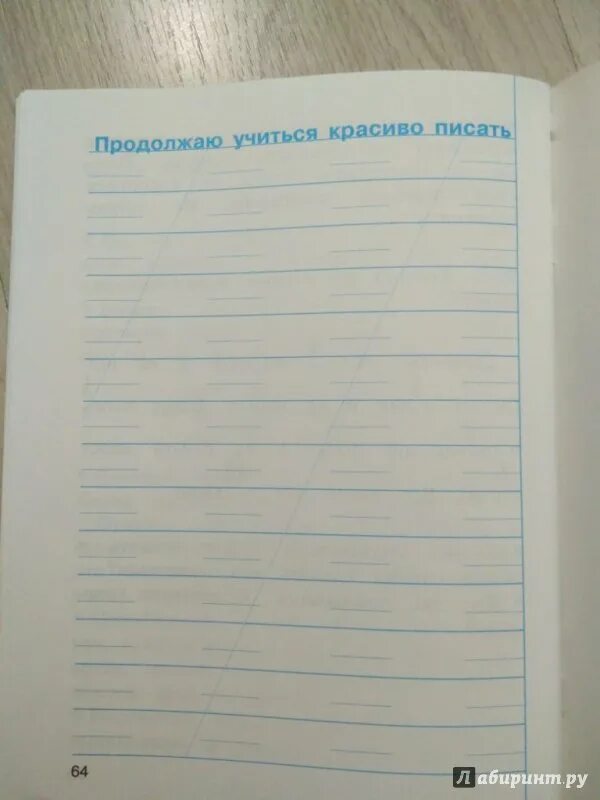 Продолжаю учиться красиво писать
64
Лабиринт.ру